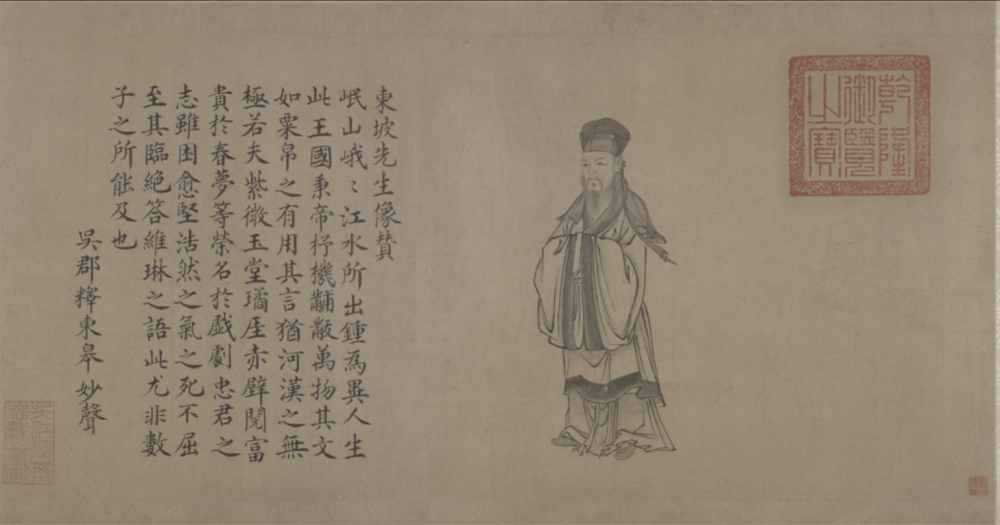 乾隆
御覽
之寶
東坡先生像賛
岷山峨〻江水所出鍾為異人生
此王國秉帝杼機黼黻萬物其文
如粟帛之有用其言猶河漢之無
極若夫紫微玉堂璚厓赤壁閱富
貴於春夢等榮名於戲劇忠君之
志雖困愈堅浩然之氣之死不屈
至其臨絶答維琳之語此尤非數
子之所能及也
吳郡釋東皋妙聲